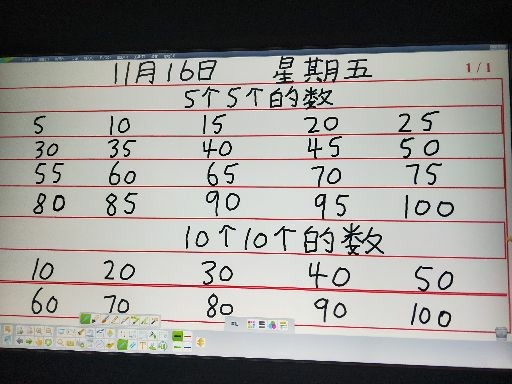 11月16日 星期五
1/1
5个5个的数
5 10 15 20 25
30 35 40 45 50
55 60 65 70 75
80 85 90 95 100
10个10个的数
10 20 30 40 50
60 70 80 90 100